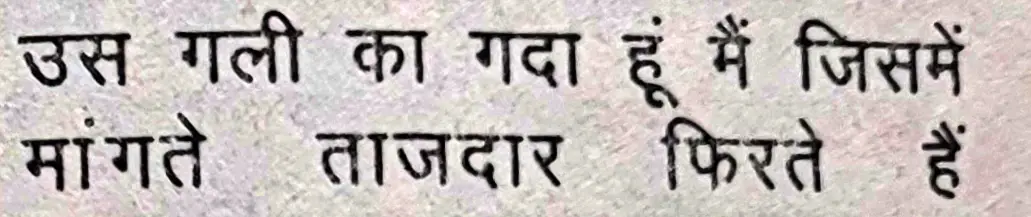 उस गली का गदा हूं मैं जिसमें
मांगते ताजदार फिरते हैं